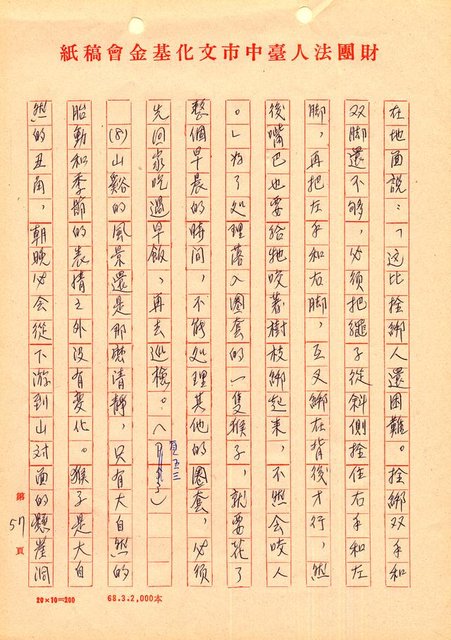 財團法人臺中市文化基金會稿紙
在地面說：「这比拴綁人還困難。拴綁双手和
双脚還不够，必須把繩子從斜側拴住右手和左
脚，再把左手和右脚，互叉綁在背後才行，然
後嘴巴也要給牠咬著樹枝綁起來，不然会咬人
。」為了处理落入圈套的一隻猴子，就要花了
整個早晨的時間，不能处理其他的圈套，必須
先回家吃過早飯，再去巡檢。（見五三）
(8)山谿的風景還是那麼清靜，只有大自然的
胎動和季節的表情之外没有變化。猴子是大自
然的丑角，朝晚必会從下游到山对面的懸崖洞
第57頁
20×10=200
68.3.2,000本